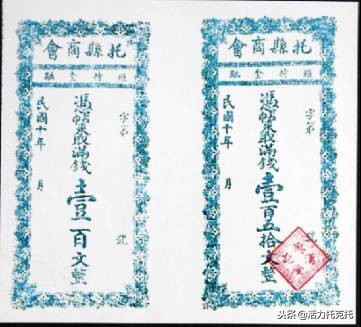 托縣商會
維持金融
字第 號
憑帖來取滿錢壹百文整
民國十年 月
托縣商會
維持金融
字第 號
憑帖來取滿錢壹百五拾文整
民國十年 月
头条 @活力托克托